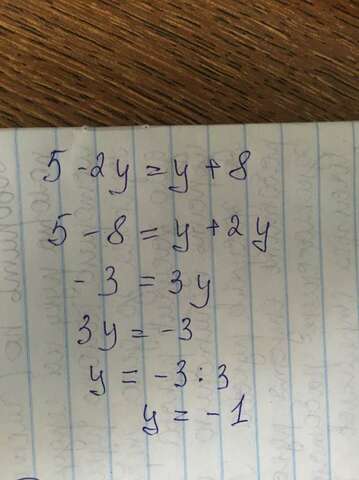 5 - 2y = y + 8
5 - 8 = y + 2y
- 3 = 3y
3y = -3
y = -3 : 3
y = -1